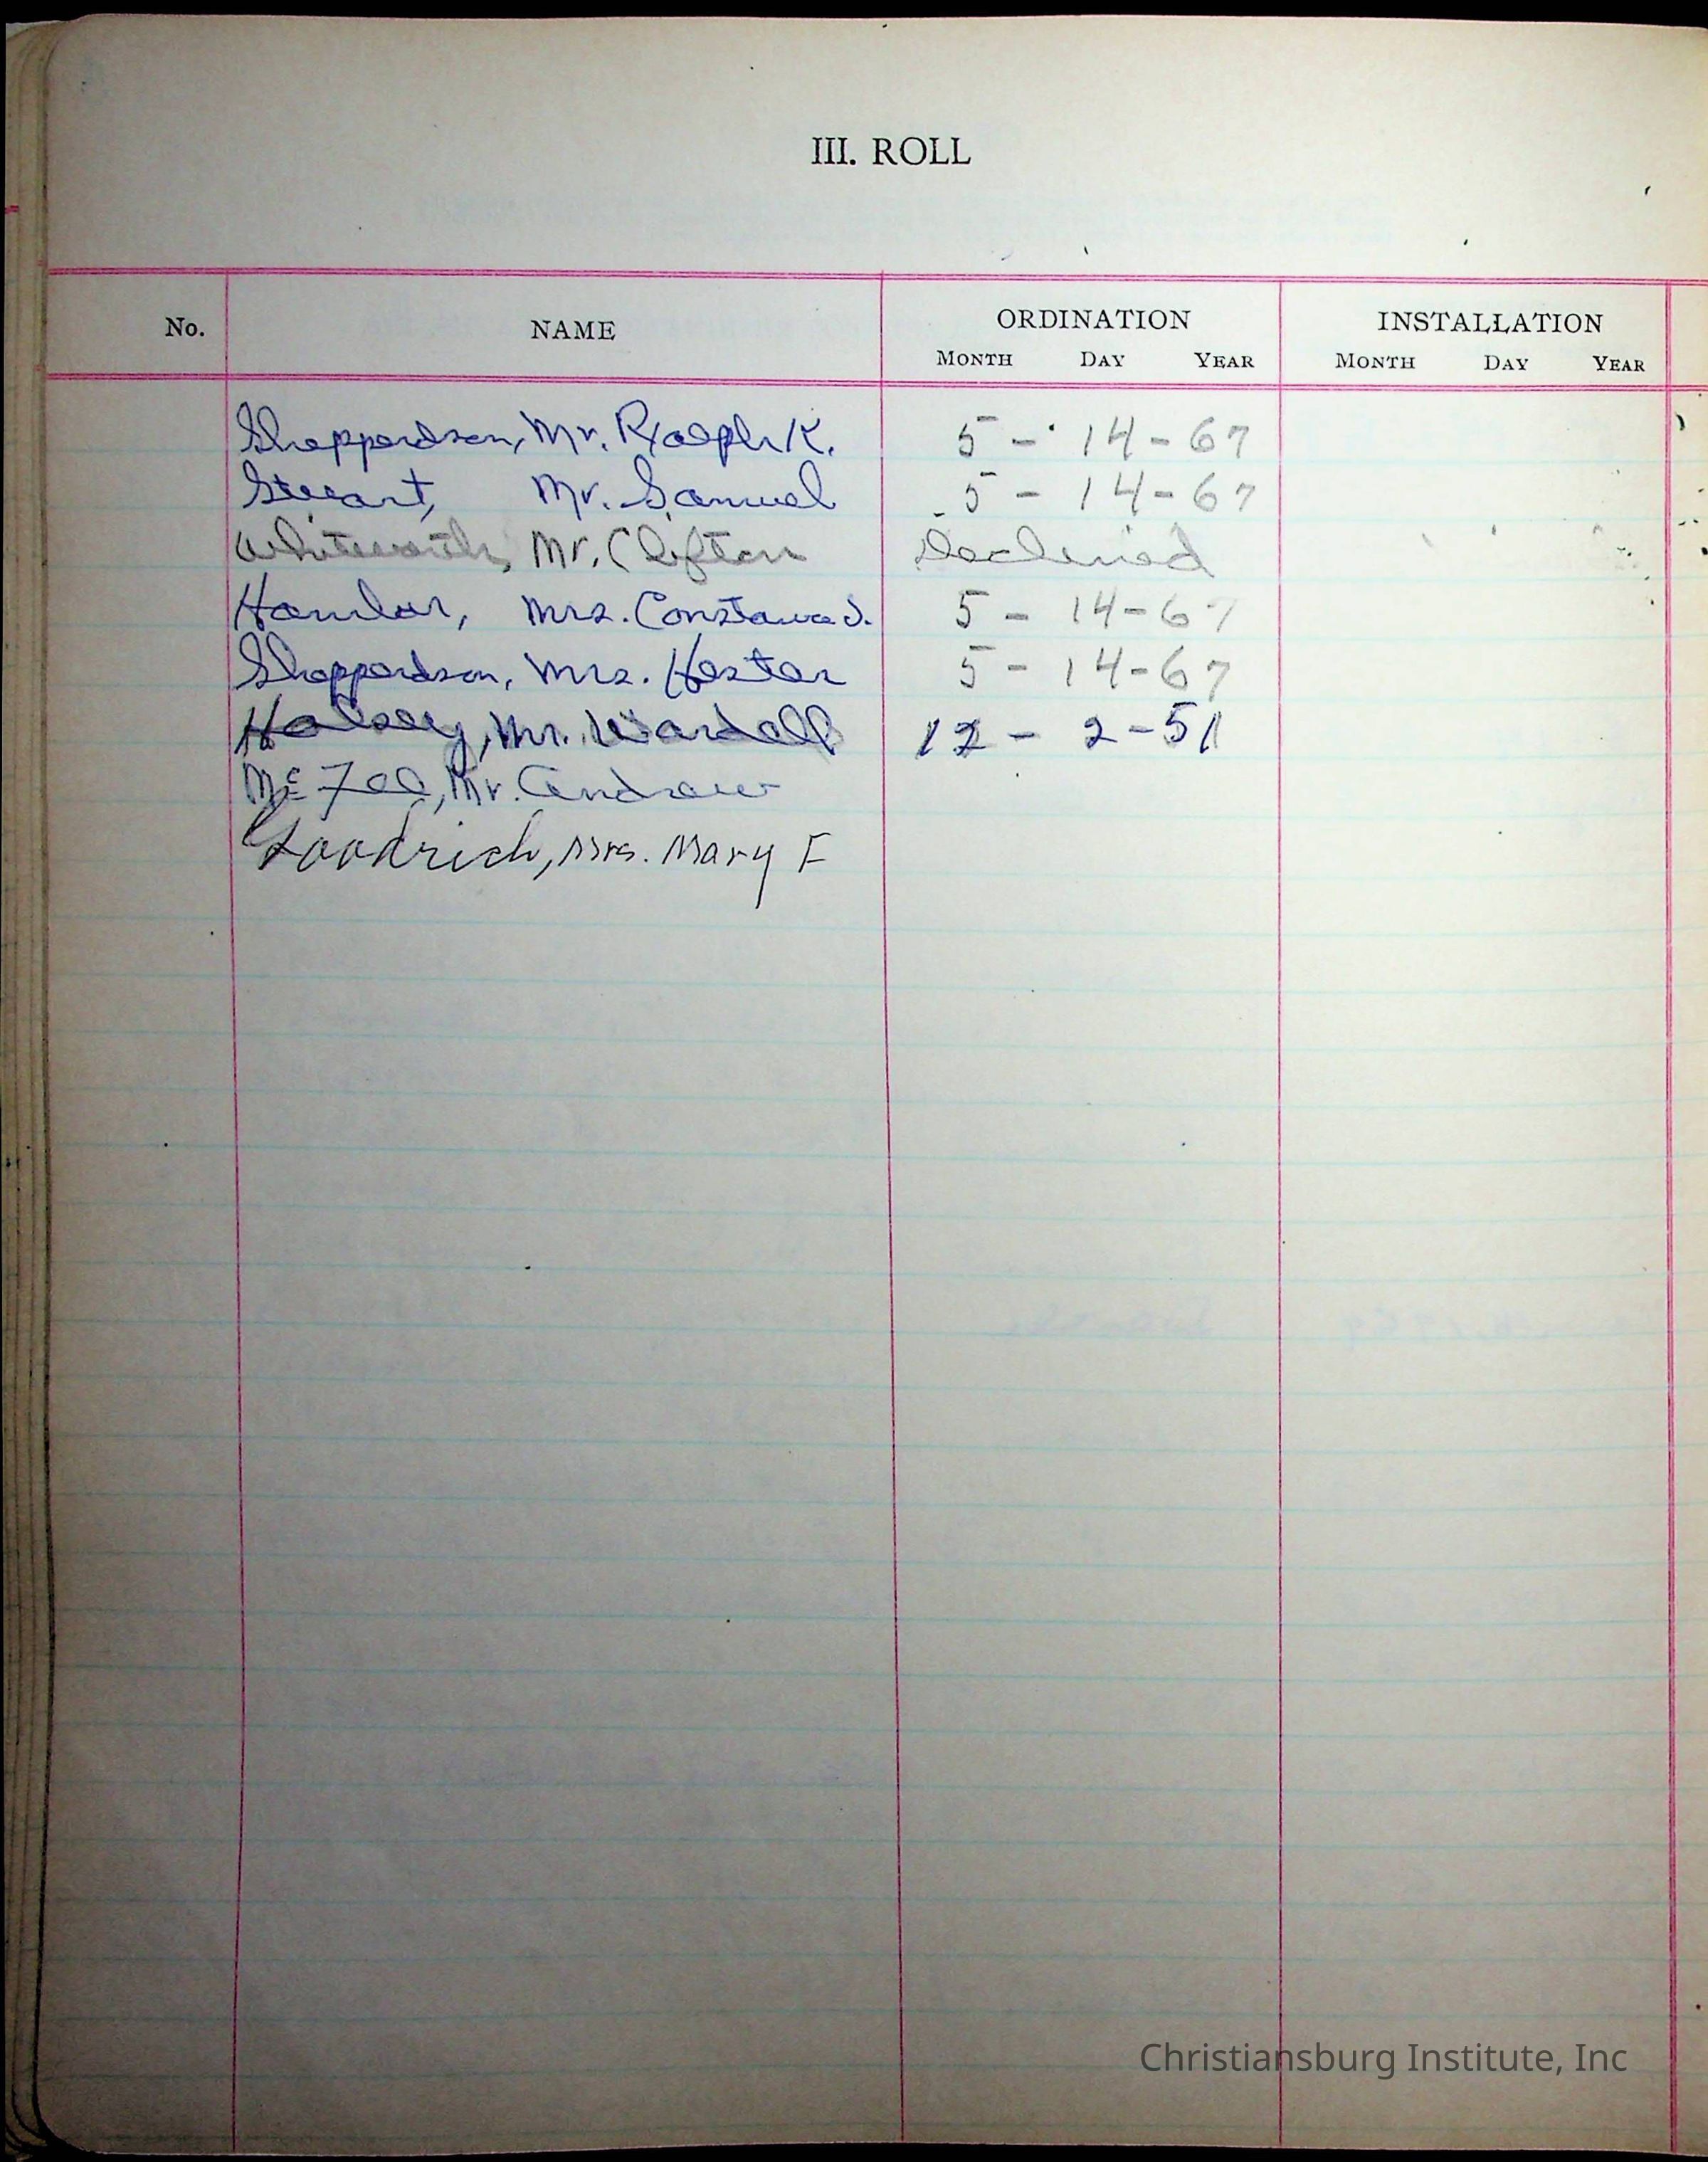 III. ROLL
No. NAME ORDINATION INSTALLATION
MONTH DAY YEAR MONTH DAY YEAR
Sheppardson, Mr. Ralph K. 5 - 14 - 67
Stewart, Mr. Samuel 5 - 14 - 67
Whiteworth, Mr. Clifton Declined
Mrs. 5 - 14 - 67
Sheppardson, Mrs. Hester 5 - 14 - 67
Halsey, Mr. Wardell 12 - 2 - 51
McFee, Mr. Andrew
Goodrich, Mrs. Mary F
Christiansburg Institute, Inc